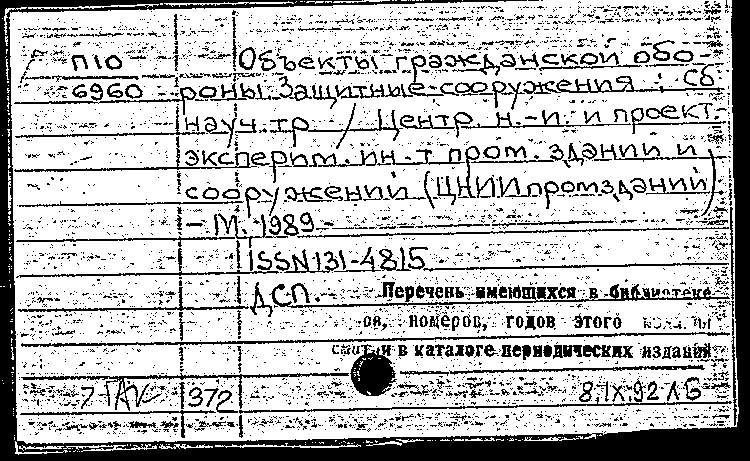 П10 Объекты гражданской обо-
6960 роны. Защитные сооружения : Сб
науч. тр / Центр. н.-и. и проект.
эксперим. ин-т пром. зданий и
сооружений (ЦНИИпромзданий)
- М. 1989 -
ISSN 131-4815
ДСП. Перечень имеющихся в библиотеке
ов, номеров, годов этого
и в каталоге периодических изданий
372 8.IX.92 ЛБ